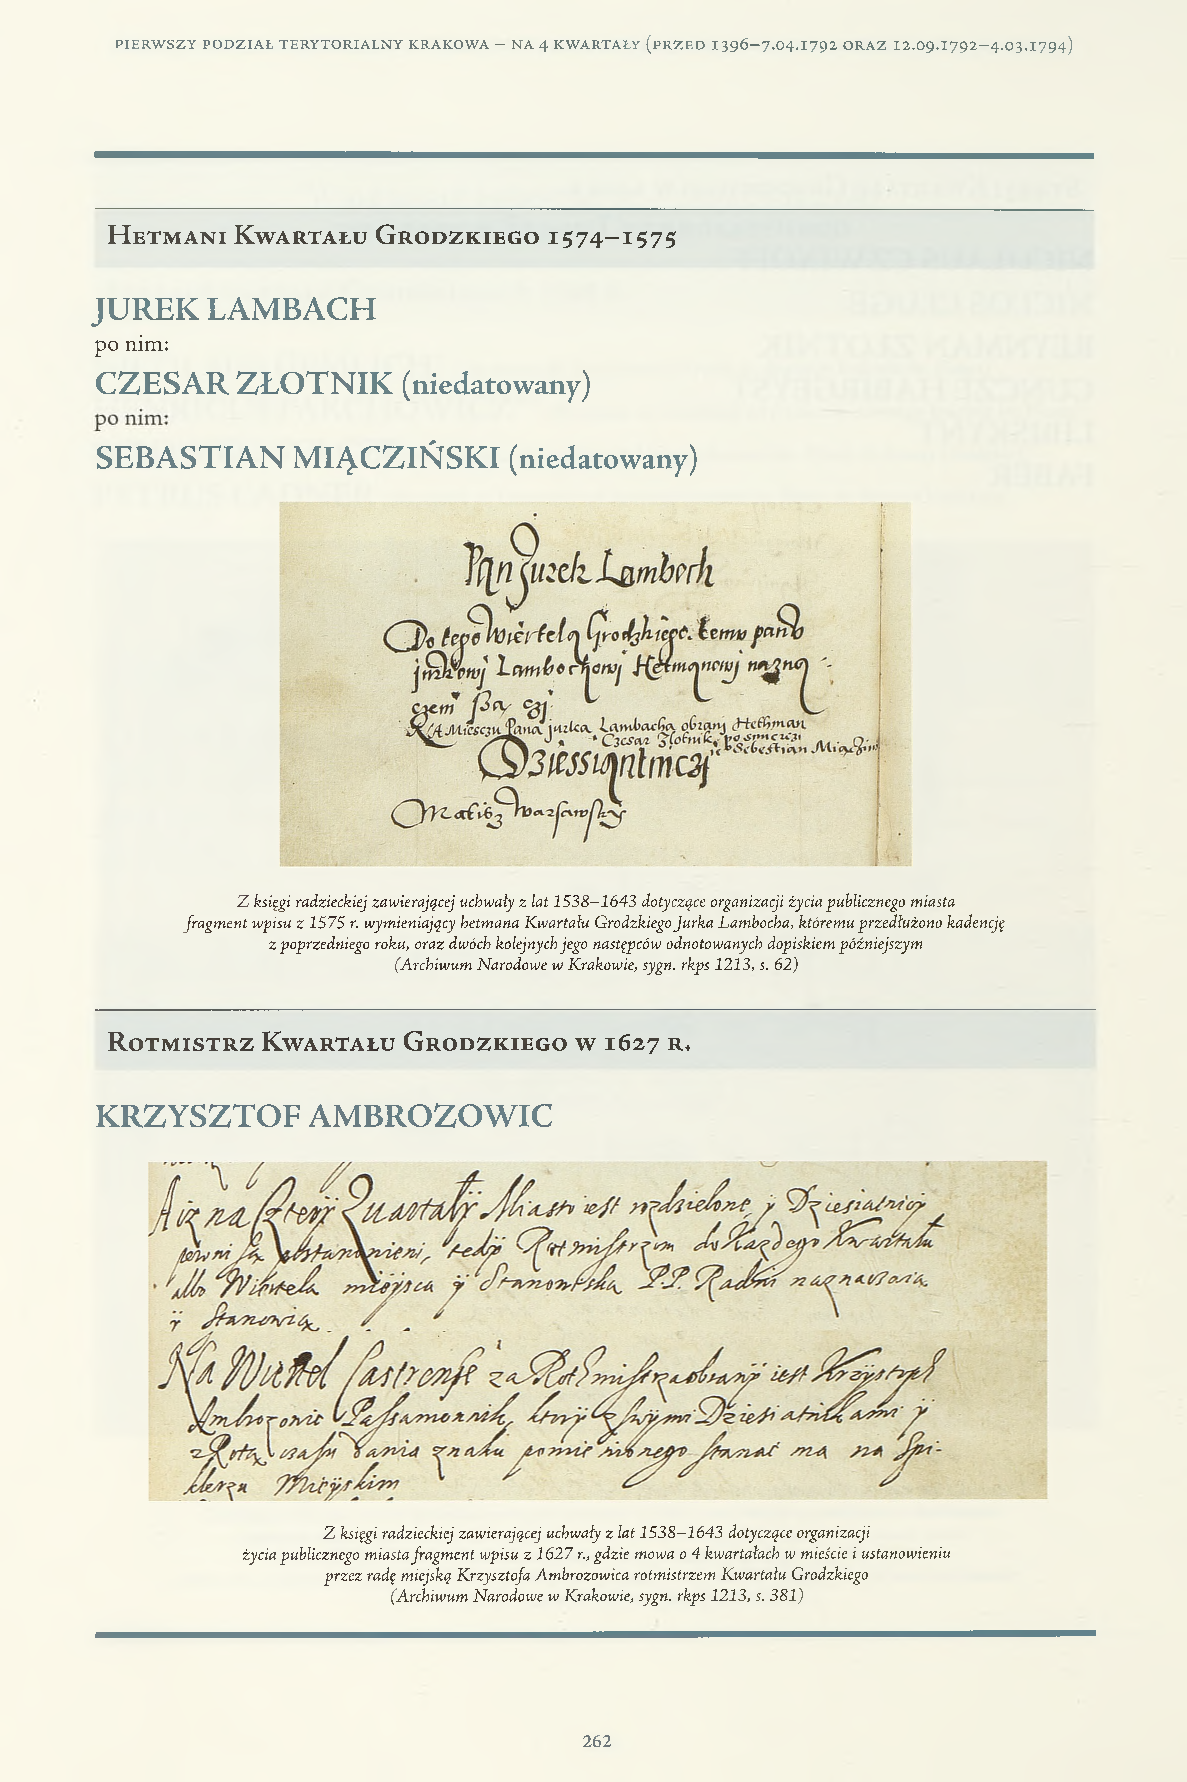 PIERWSZY PODZIAŁ TERYTORIALNY KRAKOWA – NA 4 KWARTAŁY (PRZED 1396–7.04.1792 ORAZ 12.09.1792–4.03.1794)
HETMANI KWARTAŁU GRODZKIEGO 1574–1575
JUREK LAMBACH
po nim:
CZESAR ZŁOTNIK (niedatowany)
po nim:
SEBASTIAN MIĄCZIŃSKI (niedatowany)
Pan Jurek Lamboch
Do tego Wiertela Grodzkiego temu panu
jurkowi Lambochowi Hetmanowi nazna
czeni są czi
NA Miesczu Pana jurka Lambacha obrani Hethman
Czesar Złotnik, po smierczi
Sebestian Miączin
Dziessiąntniczi
Matisz Warsawski
Z księgi radzieckiej zawierającej uchwały z lat 1538–1643 dotyczące organizacji życia publicznego miasta
fragment wpisu z 1575 r. wymieniający hetmana Kwartału Grodzkiego Jurka Lambocha, któremu przedłużono kadencję
z poprzedniego roku, oraz dwóch kolejnych jego następców odnotowanych dopiskiem późniejszym
(Archiwum Narodowe w Krakowie, sygn. rkps 1213, s. 62)
ROTMISTRZ KWARTAŁU GRODZKIEGO W 1627 R.
KRZYSZTOF AMBROZOWIC
A iż na Cztery Quartały Miasto iest rozdzielone, y Dziesiatnicy
pewni są postanowieni, tedy Rotmistrzom do Każdego Kwartału
albo Wiertela mieysca y Stanowiska P.P. Radni naznaczaią
y Stanowią
Na Wiertel Castrense za Rothmistrza obrany iest Krzysztoph
Ambrozowic Passamonnik, ktory z swymi Dziesiatnikami y
z Rotą czasu dania znaku pomienionego stanać ma na Spi-
klerzu Mieyskim
Z księgi radzieckiej zawierającej uchwały z lat 1538–1643 dotyczące organizacji
życia publicznego miasta fragment wpisu z 1627 r., gdzie mowa o 4 kwartałach w mieście i ustanowieniu
przez radę miejską Krzysztofa Ambrozowica rotmistrzem Kwartału Grodzkiego
(Archiwum Narodowe w Krakowie, sygn. rkps 1213, s. 381)
262